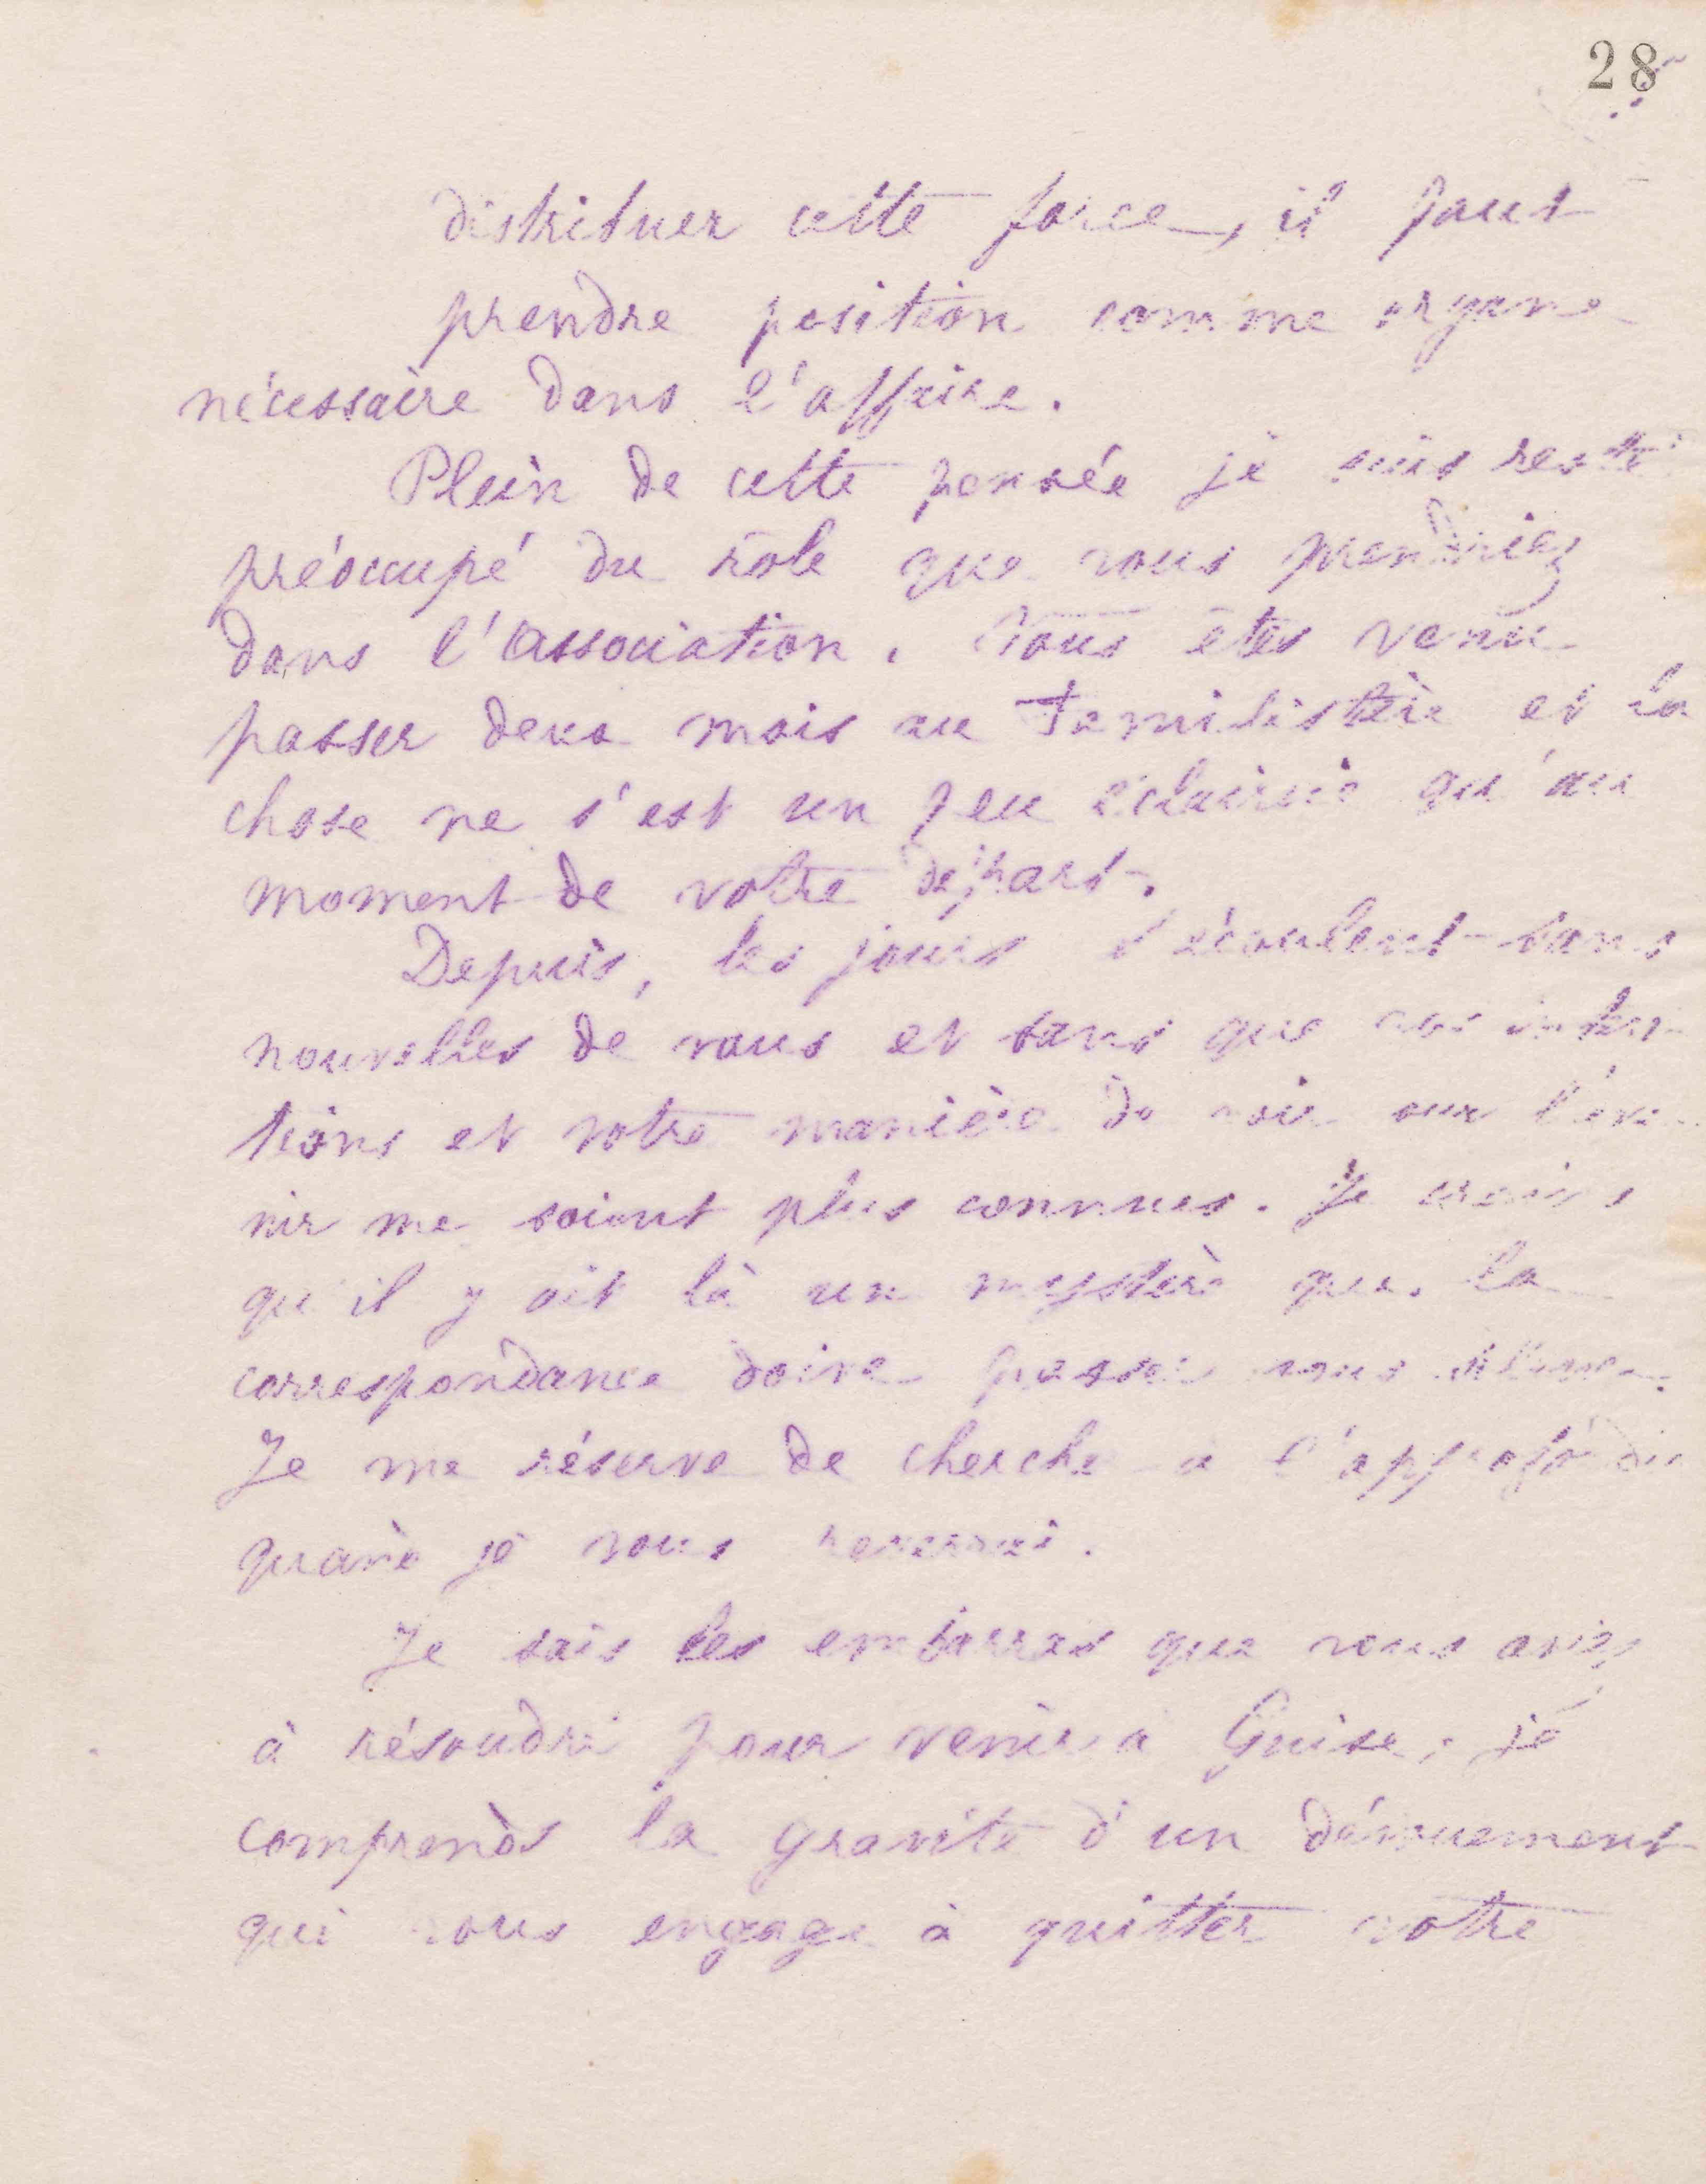 28
distribuer cette force, il faut
prendre position comme organe
nécessaire dans l'affaire.
Plein de cette pensée je suis resté
préoccupé du rôle que vous prendriez
dans l'association. Vous êtes venu
passer deux mois au Familistère et la
chose ne s'est un peu éclaircie qu'au
moment de votre départ.
Depuis, les jours s'écoulent sans
nouvelles de vous et sans que vos inten-
tions et votre manière de voir sur l'ave-
nir me soient plus connues. Je crois
qu'il y ait là un mystère que la
correspondance doive passer sous silence.
Je me réserve de chercher à l'approfondir
quand je vous reverrai.
Je sais les embarras que vous avez
à résoudre pour venir à Guise, je
comprends la gravité d'un dévouement
qui vous engage à quitter votre